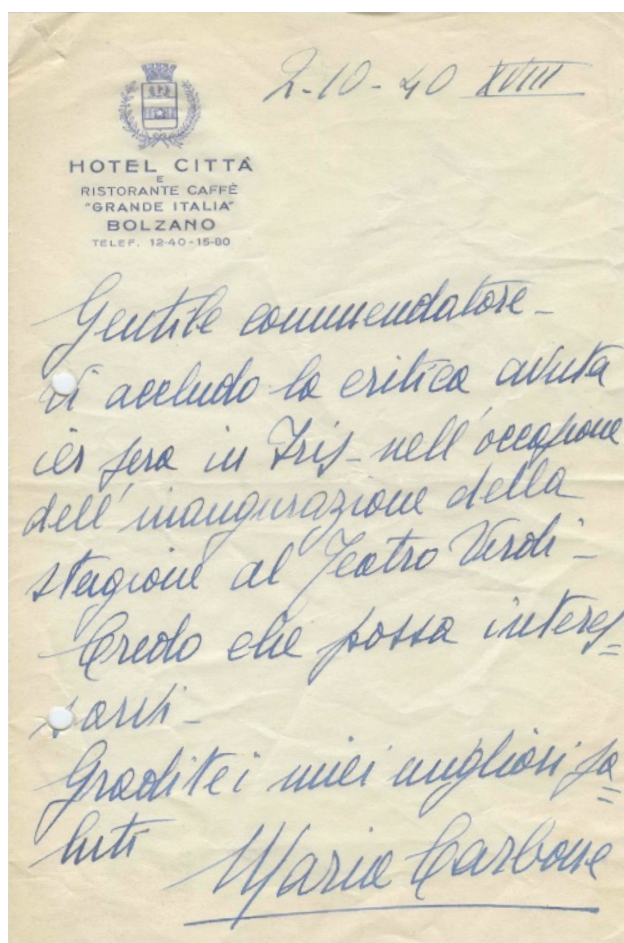 2-10-40 XVIII
HOTEL CITTÀ
E
RISTORANTE CAFFÈ
"GRANDE ITALIA"
BOLZANO
TELEF. 12-40-15-80
Gentile commendatore_
Vi accludo la critica avuta
ier sera in Iris_ nell'occasione
dell'inaugurazione della
stagione al Teatro Verdi_
Credo che possa interes=
sarvi_
Gradite i miei migliori sa=
luti
Maria Carbone